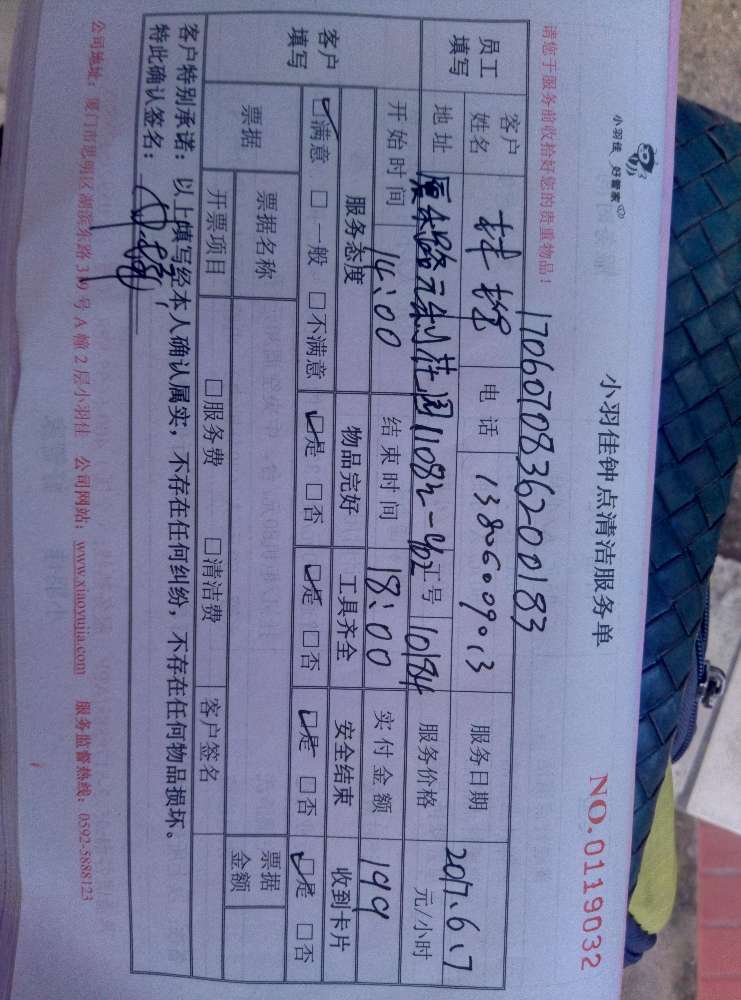 小羽佳 好管家
小羽佳钟点清洁服务单
NO.0119032
请您于服务前收拾好您的贵重物品!
1706070836200183
员工填写 客户姓名 电话 13806009013 服务日期 2017.6.7
地址 1108 工号 10184 服务价格 元/小时
开始时间 14:00 结束时间 18:00 实付金额 199
客户填写 服务态度 物品完好 工具齐全 安全结束 收到卡片
☑满意 □一般 □不满意 ☑是 □否 ☑是 □否 ☑是 □否 ☑是 □否
票据 票据名称 票据金额
开票项目 □服务费 □清洁费 客户签名
客户特别承诺:以上填写经本人确认属实,不存在任何纠纷,不存在任何物品损坏。
特此确认签名:
公司地址:厦门市思明区湖滨东路319号A幢2层小羽佳 公司网站:www.xiaoyujia.com 服务监督热线:0592-5888123